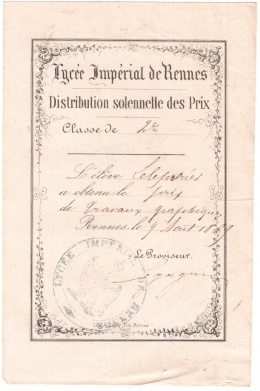 Lycée Impérial de Rennes
Distribution solennelle des Prix
Classe de 2de
L'élève
a obtenu le prix
de travaux graphiques
Rennes, le 9 Août 18
Le Proviseur.
LYCÉE IMPÉRIAL DE RENNES